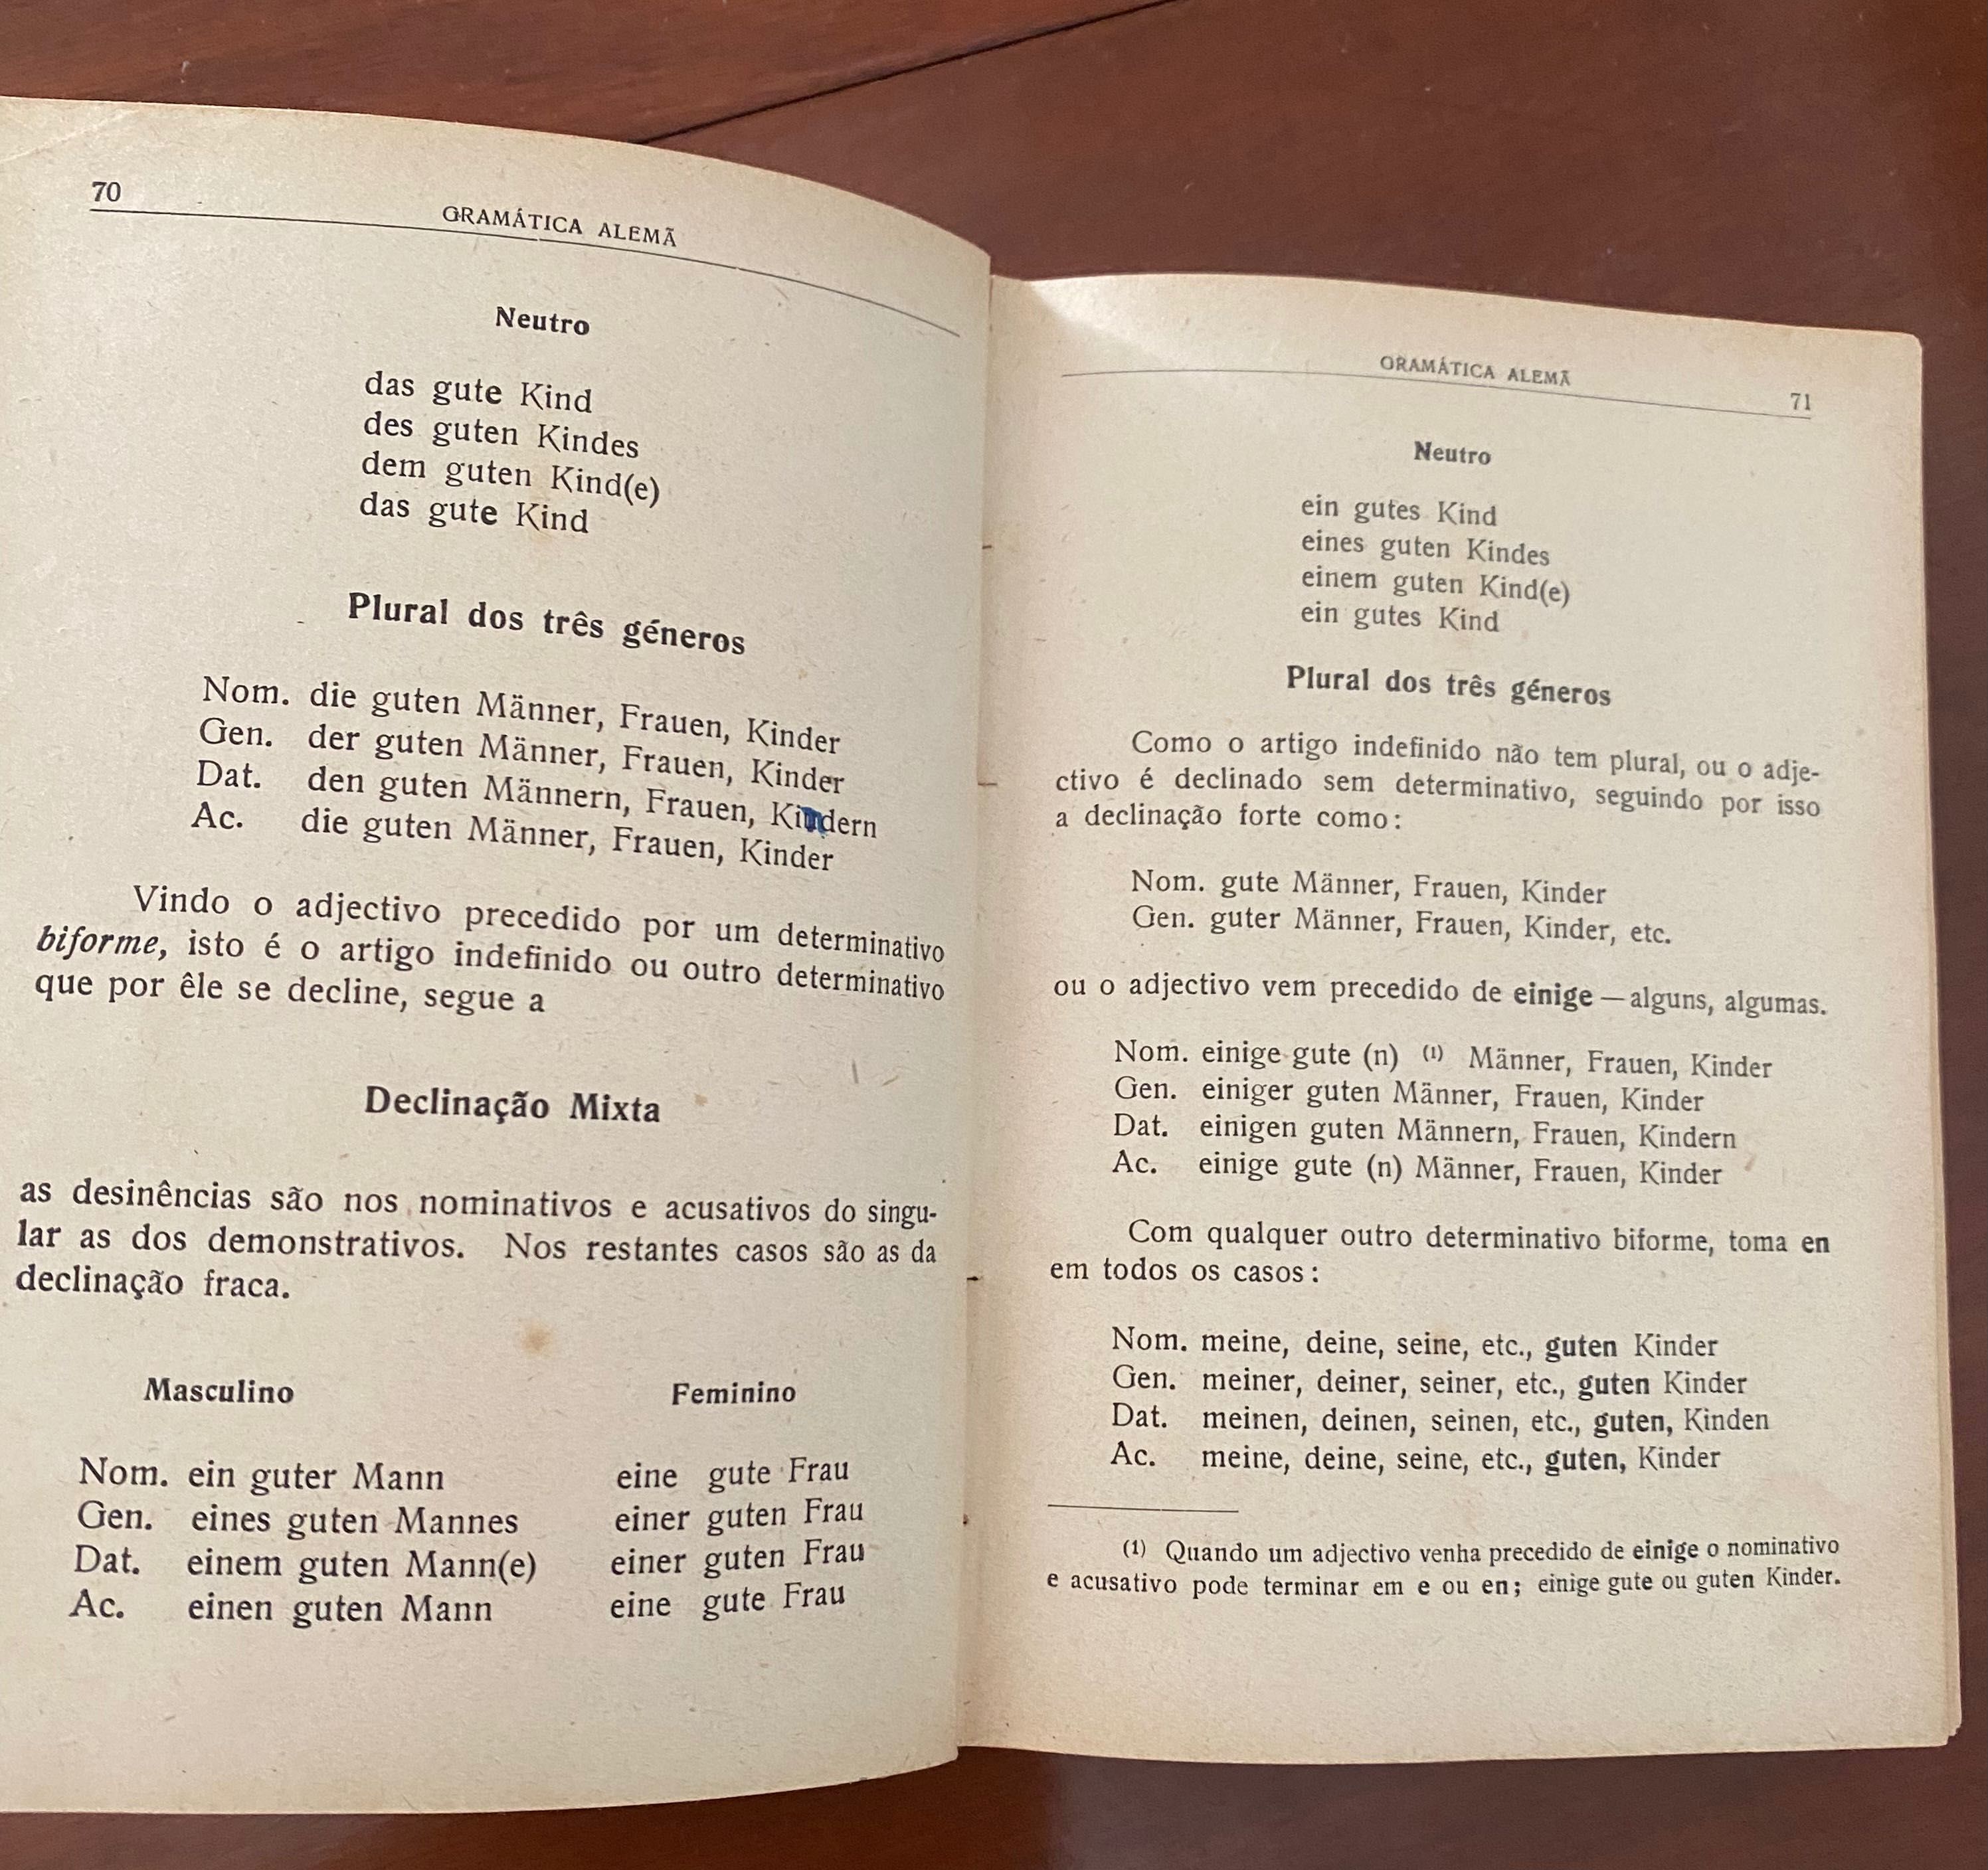 70
GRAMÁTICA ALEMÃ
Neutro
das gute Kind
des guten Kindes
dem guten Kind(e)
das gute Kind
Plural dos três géneros
Nom. die guten Männer, Frauen, Kinder
Gen. der guten Männer, Frauen, Kinder
Dat. den guten Männern, Frauen, Kindern
Ac. die guten Männer, Frauen, Kinder
Vindo o adjectivo precedido por um determinativo
biforme, isto é o artigo indefinido ou outro determinativo
que por êle se decline, segue a
Declinação Mixta
as desinências são nos nominativos e acusativos do singu-
lar as dos demonstrativos. Nos restantes casos são as da
declinação fraca.
Masculino Feminino
Nom. ein guter Mann eine gute Frau
Gen. eines guten Mannes einer guten Frau
Dat. einem guten Mann(e) einer guten Frau
Ac. einen guten Mann eine gute Frau
GRAMÁTICA ALEMÃ
71
Neutro
ein gutes Kind
eines guten Kindes
einem guten Kind(e)
ein gutes Kind
Plural dos três géneros
Como o artigo indefinido não tem plural, ou o adje-
ctivo é declinado sem determinativo, seguindo por isso
a declinação forte como:
Nom. gute Männer, Frauen, Kinder
Gen. guter Männer, Frauen, Kinder, etc.
ou o adjectivo vem precedido de einige — alguns, algumas.
Nom. einige gute (n) (1) Männer, Frauen, Kinder
Gen. einiger guten Männer, Frauen, Kinder
Dat. einigen guten Männern, Frauen, Kindern
Ac. einige gute (n) Männer, Frauen, Kinder
Com qualquer outro determinativo biforme, toma en
em todos os casos:
Nom. meine, deine, seine, etc., guten Kinder
Gen. meiner, deiner, seiner, etc., guten Kinder
Dat. meinen, deinen, seinen, etc., guten, Kinden
Ac. meine, deine, seine, etc., guten, Kinder
(1) Quando um adjectivo venha precedido de einige o nominativo
e acusativo pode terminar em e ou en; einige gute ou guten Kinder.